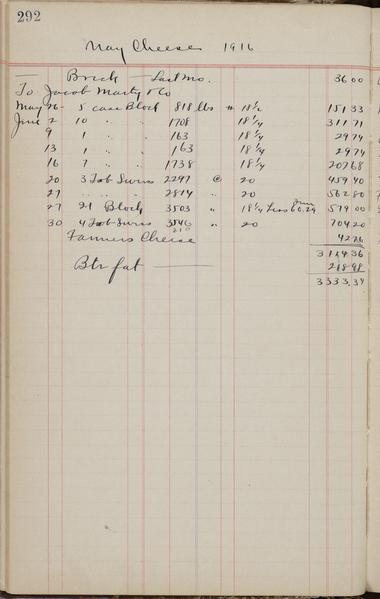 292
May Cheese 1916
— Brick — Last Mo. 36 00
To Jacob Marty & Co
May 26 - 5 case Block 818 lbs # 18 1/2 151 33
June 2 10 " " 1708 18 1/4 311 71
9 1 " " 163 18 1/4 29 74
13 1 " " 163 18 1/4 29 74
16 7 " " 1738 18 1/4 207 68
20 3 Tub Swiss 2297 @ 20 459 40
27 " " " 2814 " 20 562 80
27 21 Block 3503 " 18 1/4 Less 60.29 579 00
30 4 Tub Swiss 3546 " 20 704 20
210
Farmers Cheese 42 76
3114 36
Btr fat — 218 98
3333.34